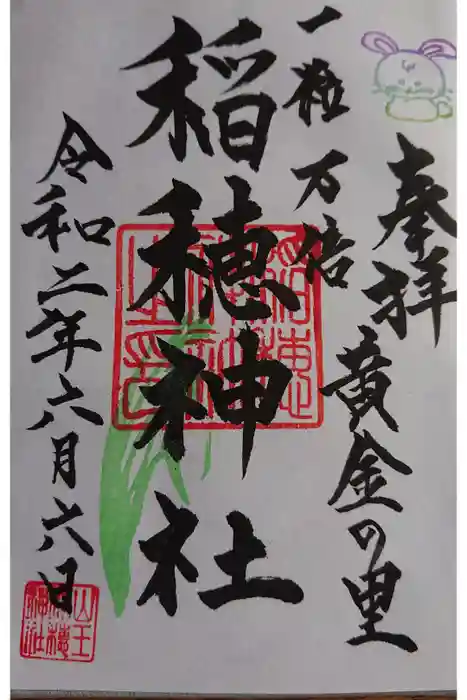 奉拝
黄金の里
一粒万倍
稲穂神社
令和二年六月六日
山王
稲穂
神社